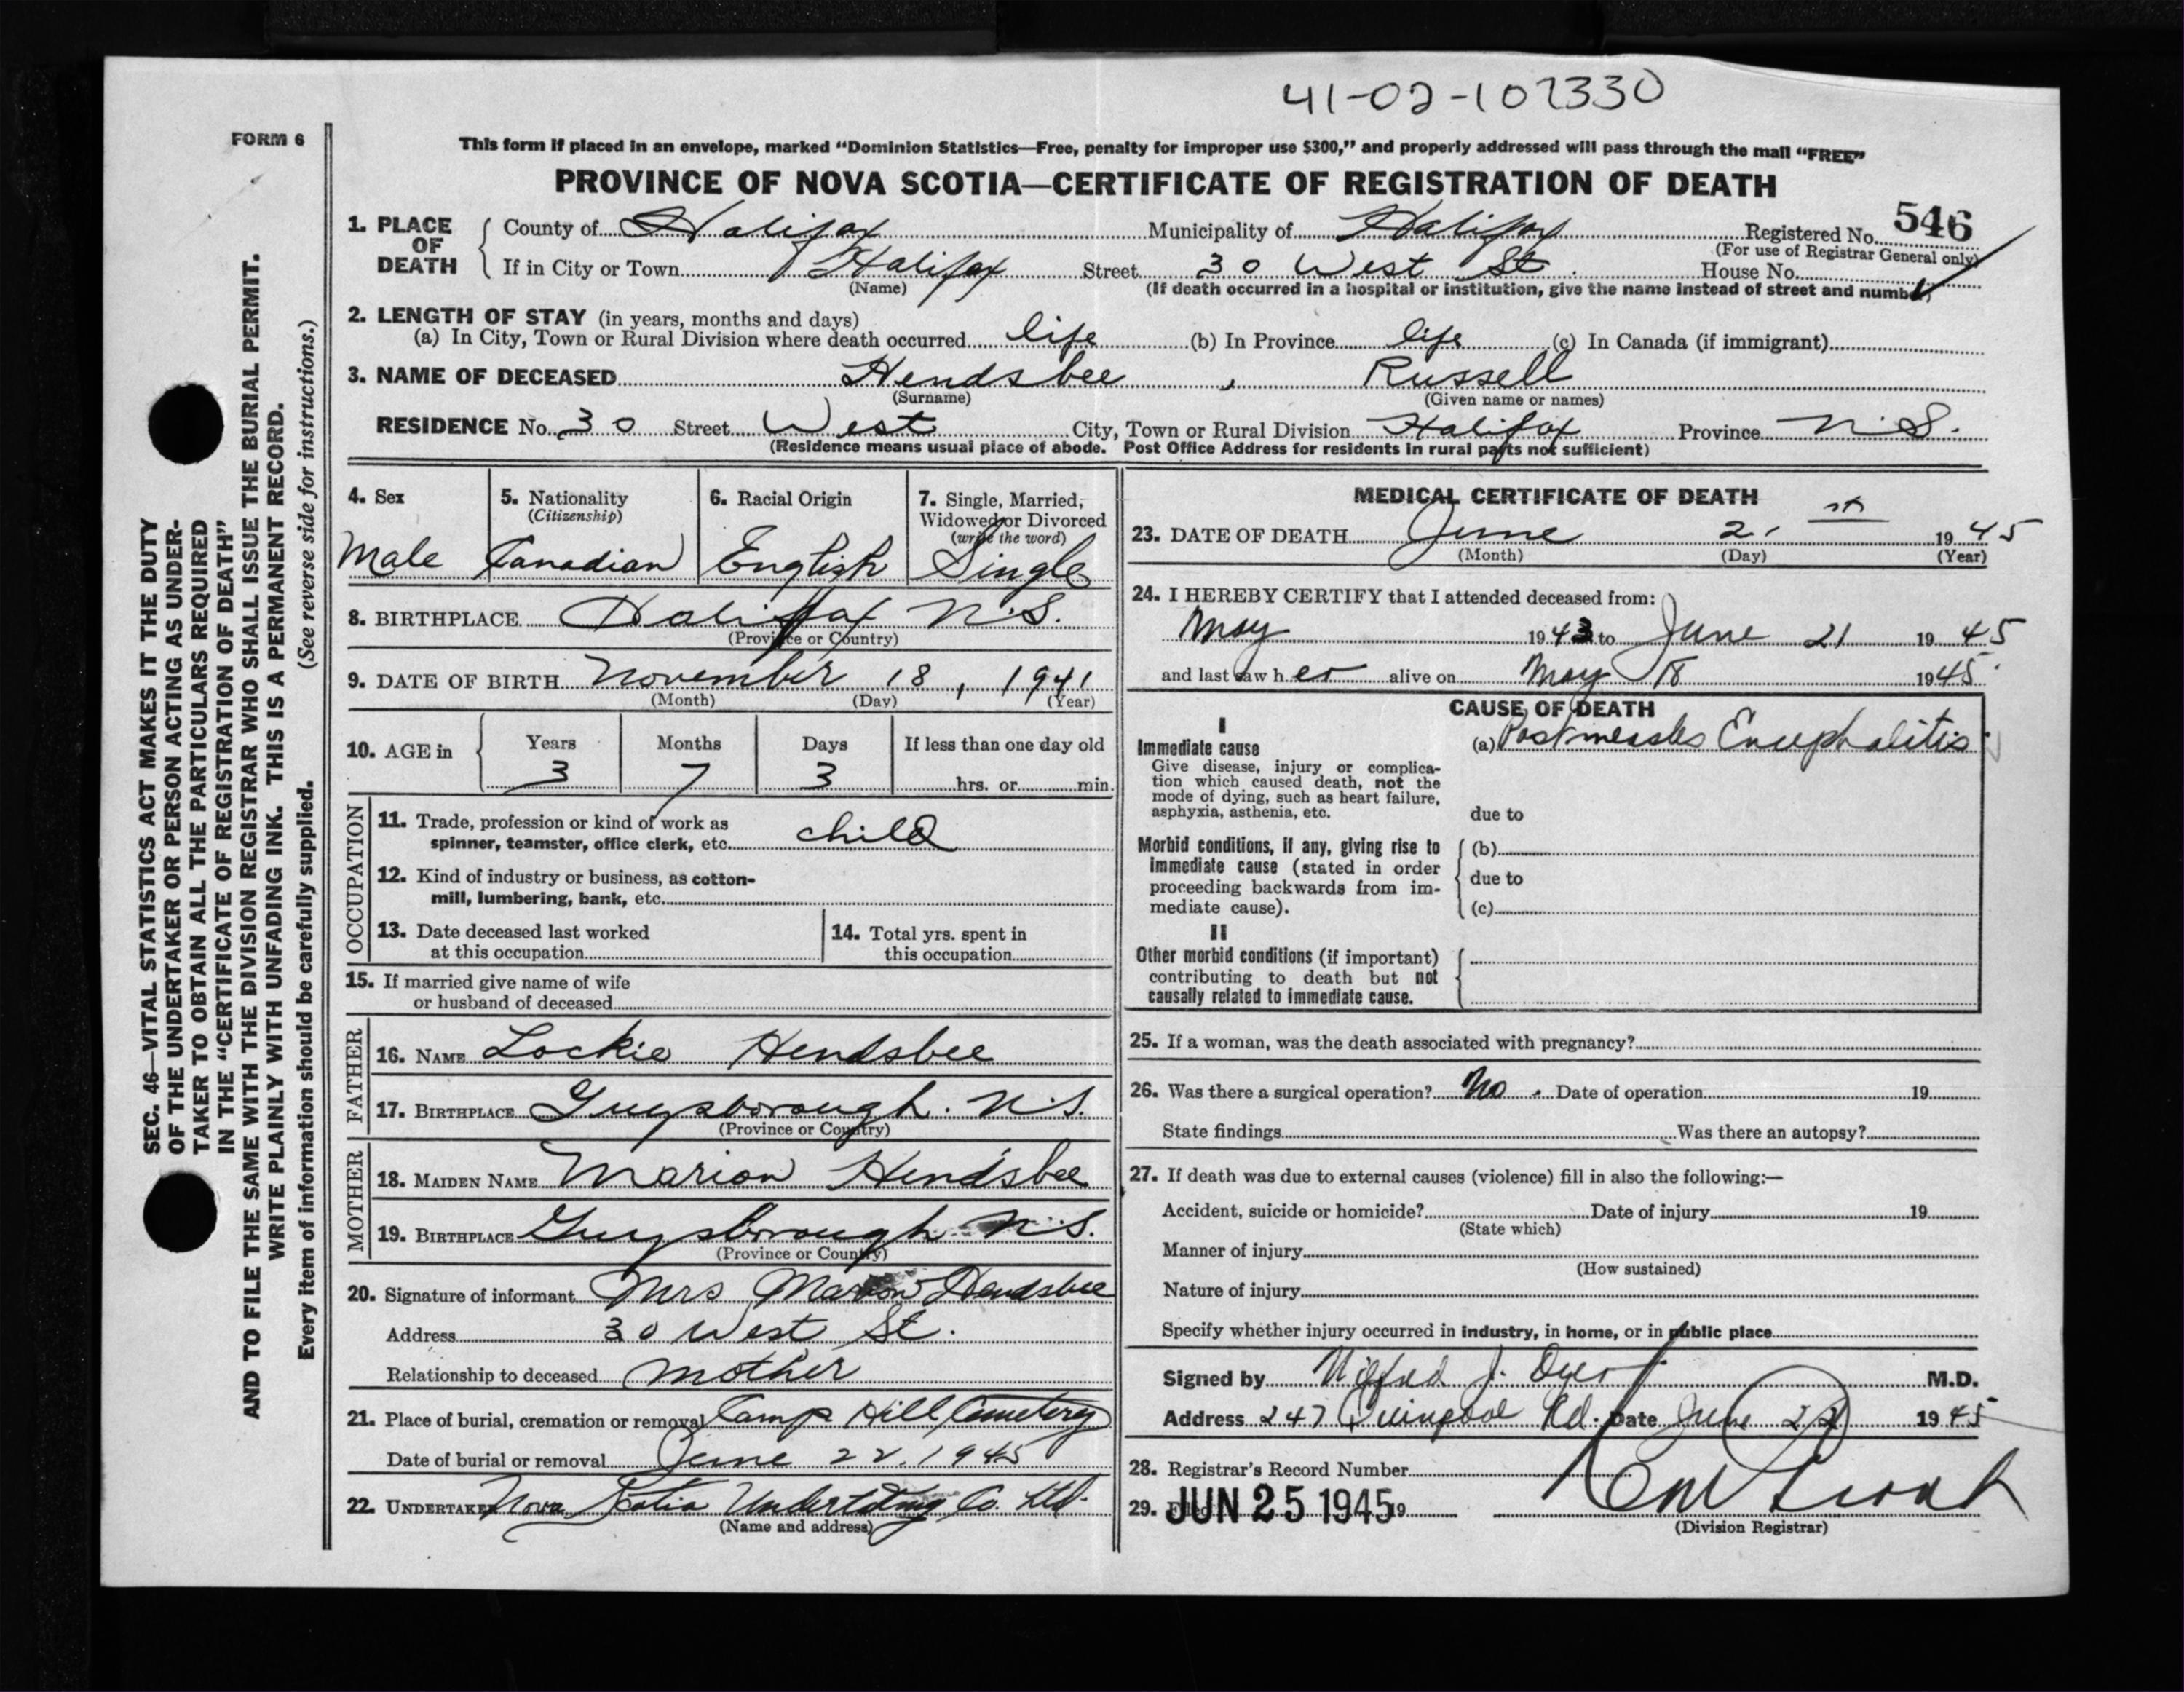 41-02-102330
FORM 6
This form if placed in an envelope, marked "Dominion Statistics—Free, penalty for improper use $300," and properly addressed will pass through the mail "FREE"
PROVINCE OF NOVA SCOTIA—CERTIFICATE OF REGISTRATION OF DEATH
546
1. PLACE OF DEATH { County of Halifax Municipality of Halifax Registered No.
(For use of Registrar General only)
If in City or Town Halifax Street 30 West St. House No.
(Name) (If death occurred in a hospital or institution, give the name instead of street and number)
2. LENGTH OF STAY (in years, months and days)
(a) In City, Town or Rural Division where death occurred life (b) In Province life (c) In Canada (if immigrant)
3. NAME OF DECEASED Hendsbee, Russell
(Surname) (Given name or names)
RESIDENCE No. 30 Street West City, Town or Rural Division Halifax Province N.S.
(Residence means usual place of abode. Post Office Address for residents in rural parts not sufficient)
4. Sex
Male
5. Nationality
(Citizenship)
Canadian
6. Racial Origin
English
7. Single, Married,
Widowed or Divorced
(write the word)
Single
8. BIRTHPLACE Halifax N.S.
(Province or Country)
9. DATE OF BIRTH November 18, 1941
(Month) (Day) (Year)
10. AGE in { Years Months Days If less than one day old
3 7 3 hrs. or min.
OCCUPATION
11. Trade, profession or kind of work as
spinner, teamster, office clerk, etc. child
12. Kind of industry or business, as cotton-
mill, lumbering, bank, etc.
13. Date deceased last worked
at this occupation
14. Total yrs. spent in
this occupation
15. If married give name of wife
or husband of deceased
FATHER
16. NAME Lockie Hendsbee
17. BIRTHPLACE Guysborough. N.S.
(Province or Country)
MOTHER
18. MAIDEN NAME Marion Hendsbee
19. BIRTHPLACE Guysborough N.S.
(Province or Country)
20. Signature of informant Mrs Marion Hendsbee
Address 30 West St.
Relationship to deceased mother
21. Place of burial, cremation or removal Camp Hill Cemetery
Date of burial or removal June 22. 1945
22. UNDERTAKER Nova Scotia Undertaking Co. Ltd.
(Name and address)
MEDICAL CERTIFICATE OF DEATH
23. DATE OF DEATH June 21st 1945
(Month) (Day) (Year)
24. I HEREBY CERTIFY that I attended deceased from:
May 1943 to June 21 1945
and last saw h er alive on May 18 1945
CAUSE OF DEATH
I
Immediate cause (a) Post measles Encephalitis.
Give disease, injury or complica-
tion which caused death, not the
mode of dying, such as heart failure,
asphyxia, asthenia, etc.
due to
Morbid conditions, if any, giving rise to
immediate cause (stated in order
proceeding backwards from im-
mediate cause).
(b)
due to
(c)
II
Other morbid conditions (if important)
contributing to death but not
causally related to immediate cause.
25. If a woman, was the death associated with pregnancy?
26. Was there a surgical operation? No. Date of operation 19
State findings Was there an autopsy?
27. If death was due to external causes (violence) fill in also the following:—
Accident, suicide or homicide? Date of injury 19
(State which)
Manner of injury
(How sustained)
Nature of injury
Specify whether injury occurred in industry, in home, or in public place
Signed by Wilfred J. Dyer M.D.
Address 247 Quinpool Rd. Date June 22 1945
28. Registrar's Record Number
29. Filed JUN 25 1945 19
(Division Registrar)
SEC. 46—VITAL STATISTICS ACT MAKES IT THE DUTY
OF THE UNDERTAKER OR PERSON ACTING AS UNDER-
TAKER TO OBTAIN ALL THE PARTICULARS REQUIRED
IN THE "CERTIFICATE OF REGISTRATION OF DEATH"
AND TO FILE THE SAME WITH THE DIVISION REGISTRAR WHO SHALL ISSUE THE BURIAL PERMIT.
WRITE PLAINLY WITH UNFADING INK. THIS IS A PERMANENT RECORD.
Every item of information should be carefully supplied. (See reverse side for instructions.)